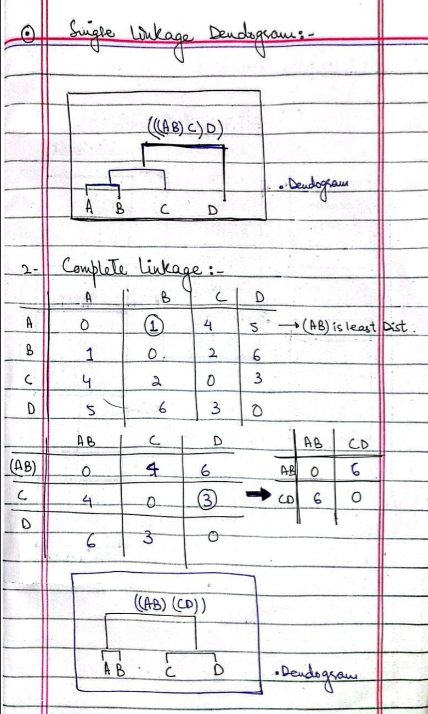 Single Linkage Dendogram:-
((AB) C) D)
A B C D
• Dendogram
2- Complete Linkage :-
A B C D
A 0 1 4 5 → (AB) is least Dist.
B 1 0. 2 6
C 4 2 0 3
D 5 6 3 0
AB C D
(AB) 0 4 6
C 4 0 3
D 6 3 0
AB CD
AB 0 6
CD 6 0
((AB) (CD))
A B C D
• Dendogram